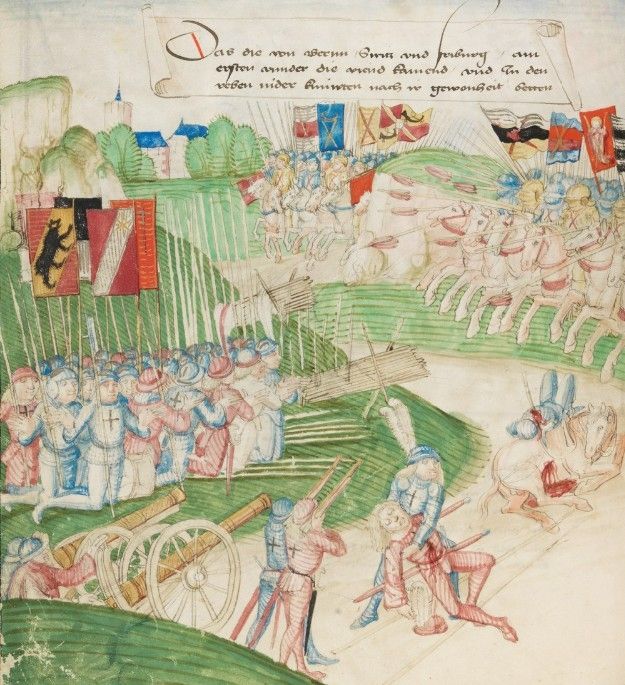 Das die von Bernn Switz vnd friburg am
ersten vnnder die viend kamend vnd In den
reben nider knuwten nach ir gewonheit betten